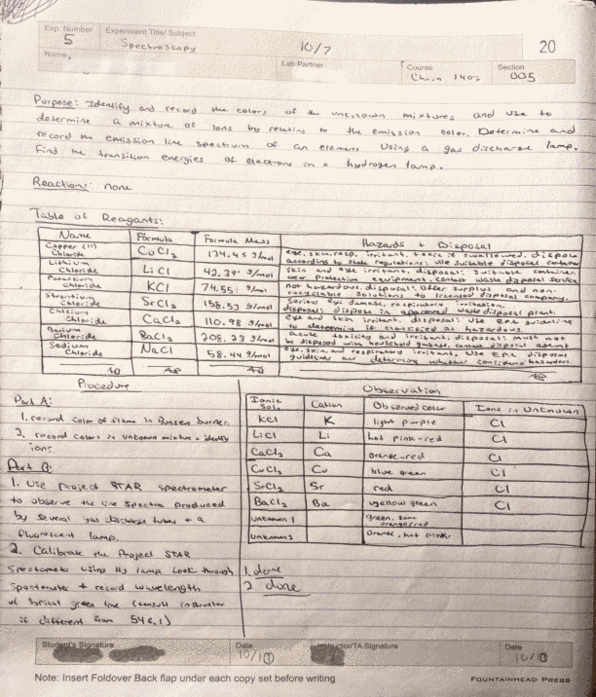 Exp. Number Experiment Title/ Subject
5 Spectroscopy 10/7 20
Name Lab Partner Course Section
Chem 1402 005
Purpose: Identify and record the colors of the unknown mixtures and use to
determine a mixture of ions by relating to the emission color. Determine and
record the emission line spectrum of an element using a gas discharge lamp.
Find the transition energies of electrons in a hydrogen lamp.
Reaction: none
Table of Reagents:
Name Formula Formula Mass Hazards + Disposal
Copper (II) Chloride CuCl2 134.45 g/mol eye, skin, resp. irritant, toxic if swallowed, dispose according to state regulations; use suitable disposal container
Lithium Chloride LiCl 42.39 g/mol skin and eye irritant, disposal: suitable container, wear protective equipment, contact waste disposal service
Potassium Chloride KCl 74.551 g/mol not hazardous, disposal: offer surplus and non-recyclable solutions to licensed disposal company.
Strontium Chloride SrCl2 158.53 g/mol Serious eye damage, respiratory irritation, disposal: dispose in approved waste disposal plant.
Calcium Chloride CaCl2 110.98 g/mol eye and skin irritant, disposal: use EPA guideline to determine if classified as hazardous.
Barium Chloride BaCl2 208.23 g/mol acute toxicity and irritant, disposal: must not be disposed with household garbage, contact disposal
Sodium Chloride NaCl 58.44 g/mol eye, skin, and respiratory irritant, Use EPA disposal guidelines and determine whether considered hazardous.
Procedure
Part A:
1. record color of flame in Bunsen burner.
2. record colors in unknown mixture + identify
ions.
Part B:
1. Use Project STAR spectrometer
to observe the line spectra produced
by several gas discharge tubes + a
fluorescent lamp.
2. Calibrate the Project STAR
Spectrometer using Hg lamp. Look through
Spectrometer + record wavelength
of bright green line (consult instructor
if different from 546.1)
Observation
Ionic Soln. Cation Observed color Ions in Unknown
KCl K light purple Cl
LiCl Li hot pink-red Cl
CaCl2 Ca orange-red Cl
CuCl2 Cu blue green Cl
SrCl2 Sr red Cl
BaCl2 Ba yellow green Cl
Unknown 1 green, some orange/red
Unknown 2 Orange, hot pink
1. done
2. done
Student's Signature Date Instructor/TA Signature Date
10/13 10/13
Note: Insert Foldover Back flap under each copy set before writing FOUNTAINHEAD PRESS